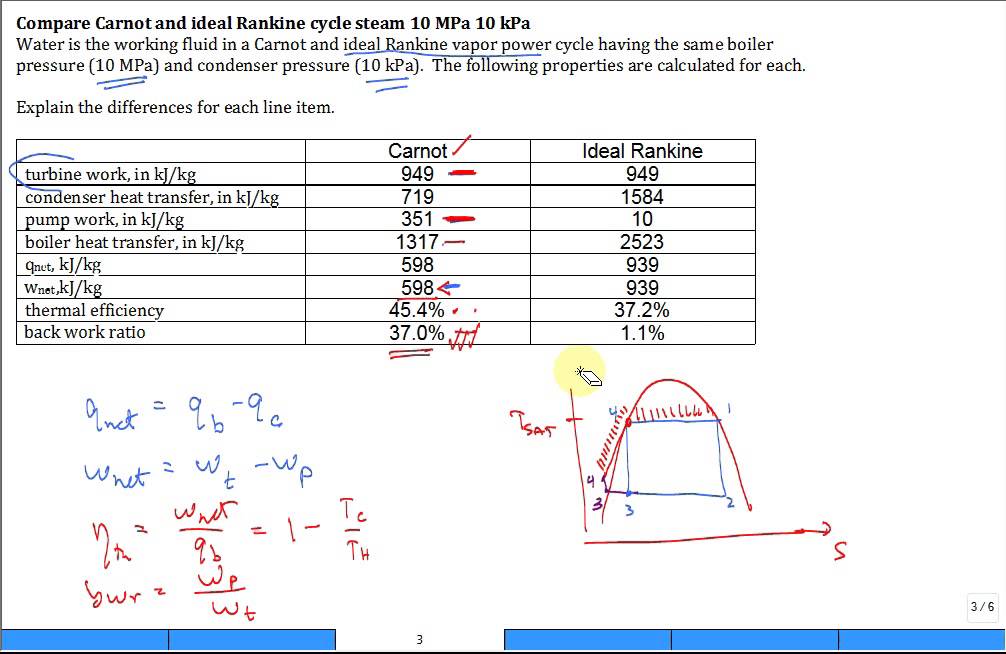 Compare Carnot and ideal Rankine cycle steam 10 MPa 10 kPa
Water is the working fluid in a Carnot and ideal Rankine vapor power cycle having the same boiler
pressure (10 MPa) and condenser pressure (10 kPa). The following properties are calculated for each.
Explain the differences for each line item.
Carnot Ideal Rankine
turbine work, in kJ/kg 949 949
condenser heat transfer, in kJ/kg 719 1584
pump work, in kJ/kg 351 10
boiler heat transfer, in kJ/kg 1317 2523
qnet, kJ/kg 598 939
wnet,kJ/kg 598 939
thermal efficiency 45.4% 37.2%
back work ratio 37.0% 1.1%
qnet = qb - qc
wnet = wt - wp
ηth = wnet/qb = 1 - TC/TH
bwr = wp/wt
TSAT
4 1
4
3 3 2
S
3 / 6
3